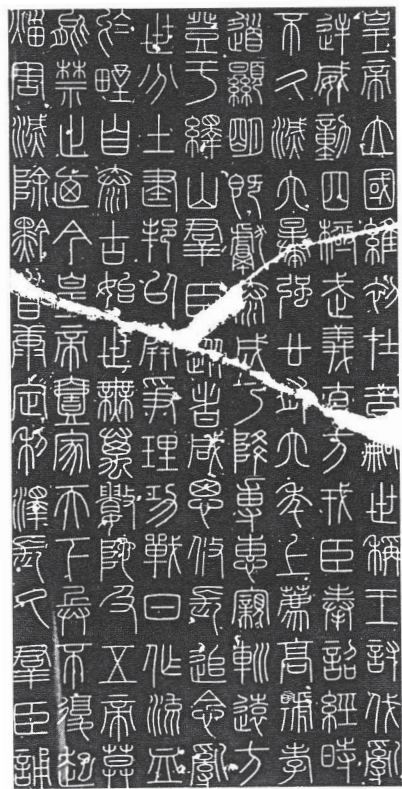 皇帝立國維初在昔嗣世稱王討伐亂
逆威動四極武義直方戎臣奉詔經時
不久滅六暴強廿有六年上薦高號孝
道顯明既獻泰成乃降尃惠親軔遠方
登于繹山羣臣從者咸思攸長追念亂
世分土建邦以開爭理功戰日作流血
於野自泰古始世無萬數陀及五帝莫
能禁止廼今皇帝壹家天下兵不復起
災害滅除黔首康定利澤長久羣臣誦